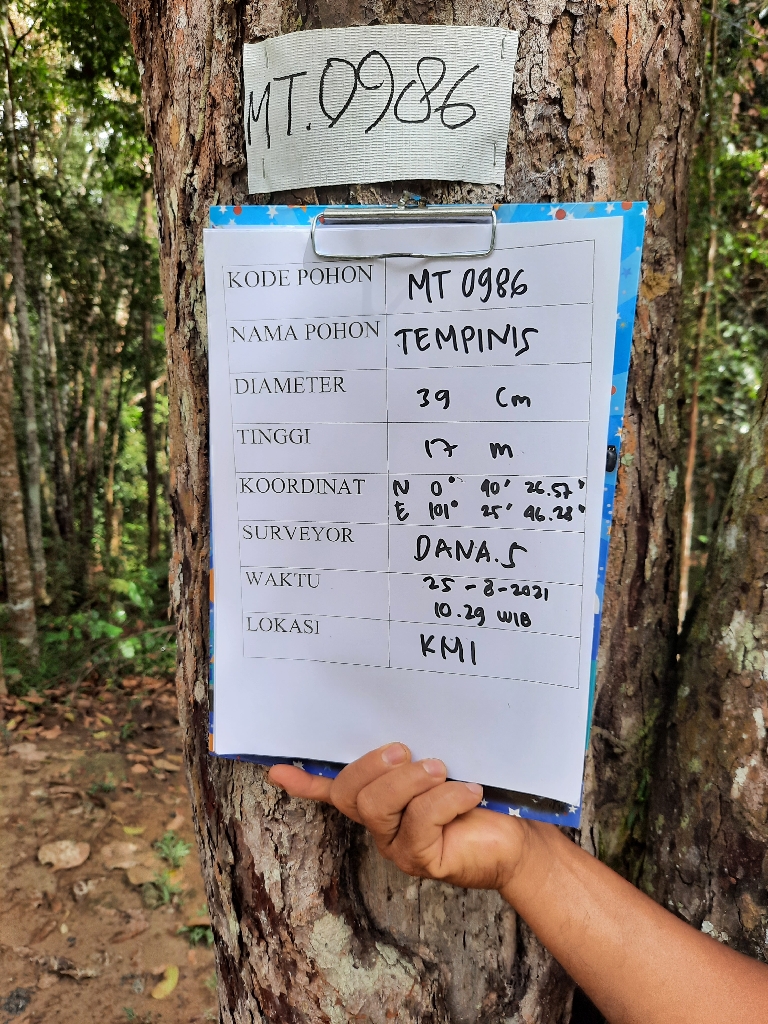 MT.0986
KODE POHON MT 0986
NAMA POHON TEMPINIS
DIAMETER 39 Cm
TINGGI 17 m
KOORDINAT N 0° 40' 26.57"
E 101° 25' 46.28"
SURVEYOR DANA.S
WAKTU 25-8-2021
10.29 WIB
LOKASI KMI